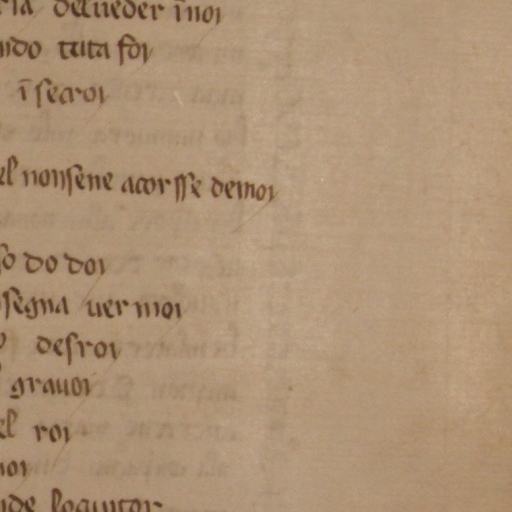 ria deueder īnoi
ndo tuta foi
ī secroi
el nonsene acorsse demoi
so do doi
segna uer moi
desroi
grauoi
el roi
noi
nde loquitor